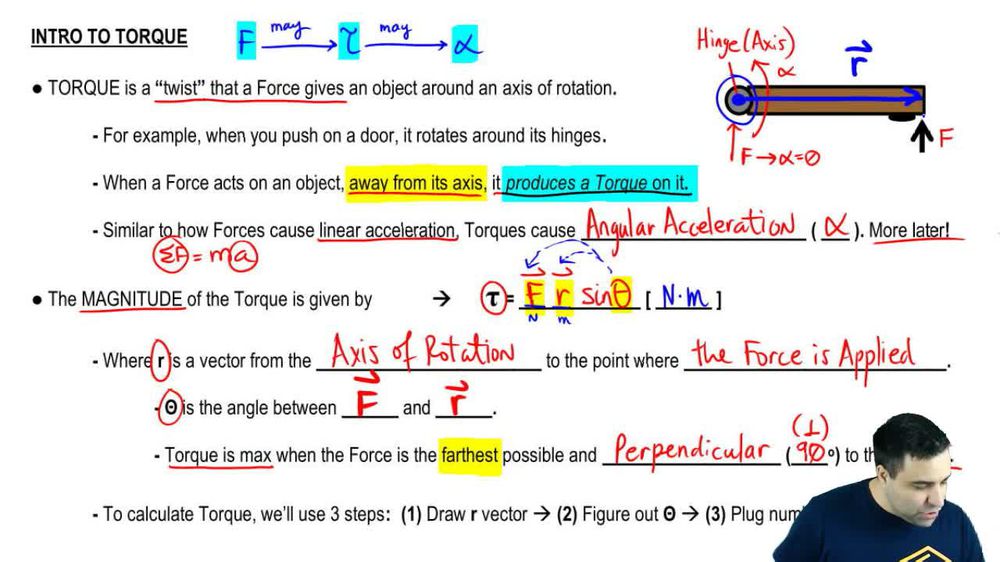 INTRO TO TORQUE F may τ may α
Hinge (Axis)
α
r
F
F → α=0
● TORQUE is a “twist” that a Force gives an object around an axis of rotation.
- For example, when you push on a door, it rotates around its hinges.
- When a Force acts on an object, away from its axis, it produces a Torque on it.
- Similar to how Forces cause linear acceleration, Torques cause Angular Acceleration ( α ). More later!
ΣF = ma
● The MAGNITUDE of the Torque is given by → τ = F r sinθ [ N·m ]
N m
- Where r is a vector from the Axis of Rotation to the point where the Force is Applied.
- Θ is the angle between F and r.
(⊥)
- Torque is max when the Force is the farthest possible and Perpendicular (90º) to
- To calculate Torque, we’ll use 3 steps: (1) Draw r vector → (2) Figure out Θ → (3) Plug